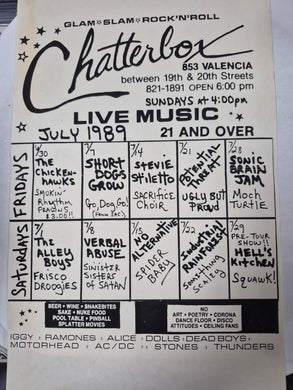 GLAM★SLAM★ROCK'N'ROLL
Chatterbox
853 VALENCIA
between 19th & 20th Streets
821-1891 OPEN 6:00 pm
SUNDAYS at 4:00pm
LIVE MUSIC
JULY 1989 21 AND OVER
FRIDAYS
6/30
The CHICKEN-
HAWKS
SMOKIN'
Rhythm
PRAWNS
$3.00!!
7/7
SHORT
DOGS
GROW
Go, Dog, Go!
(FROM SAC.)
7/14
STEVIE
STILETTO
SACRIFICE
CHOIR
7/21
POTENTIAL
THREAT
UGLY BUT
PROUD
7/28
SONIC
BRAIN
JAM
Moch
TURTLE
SATURDAYS
7/1
The
ALLEY
BOYS
FRISCO
DROOGIES
7/8
VERBAL
ABUSE
SINISTER
SISTERS
OF SATAN
7/15
NO
ALTERNATIVE
SPIDER
BABY
7/22
INDUSTRIAL
RAINFOREST
Something
7/29
PRE-TOUR
SHOW!!
HELL'S
KITCHEN
SQUAWK!
BEER • WINE • SNAKEBITES
SAKE • NUKE FOOD
POOL TABLE • PINBALL
SPLATTER MOVIES
NO
ART • POETRY • CORONA
DANCE FLOOR • DISCO
ATTITUDES • CEILING FANS
IGGY RAMONES ALICE DOLLS DEAD BOYS
MOTORHEAD AC/DC STONES THUNDERS